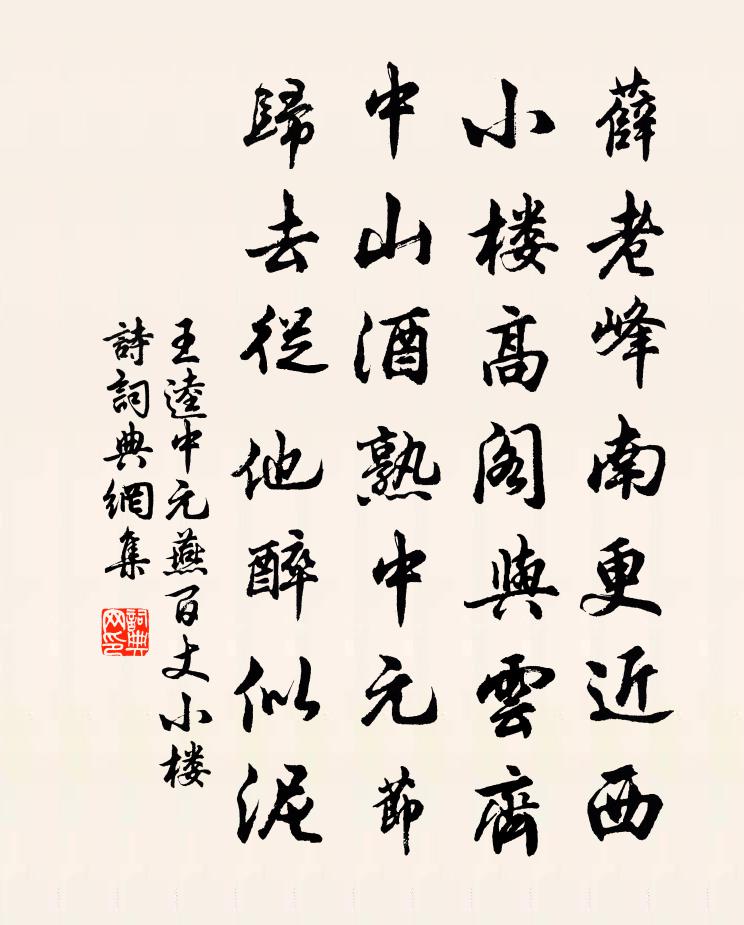 薛老峰南更近西
小楼高阁與雲齊
中山酒熟中元節
歸去從他醉似泥
王逵中元燕百丈小楼
詩詞典網集
詞典網印